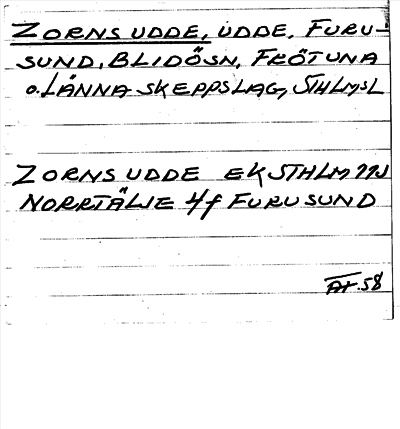 ZORNS UDDE, UDDE, FURU-
SUND, BLIDÖSN, FRÖTUNA
o. LÄNNA SKEPPSLAG, STHLMSL
ZORNS UDDE EK STHLM NNJ
NORRTÄLJE 4/f FURUSUND
58